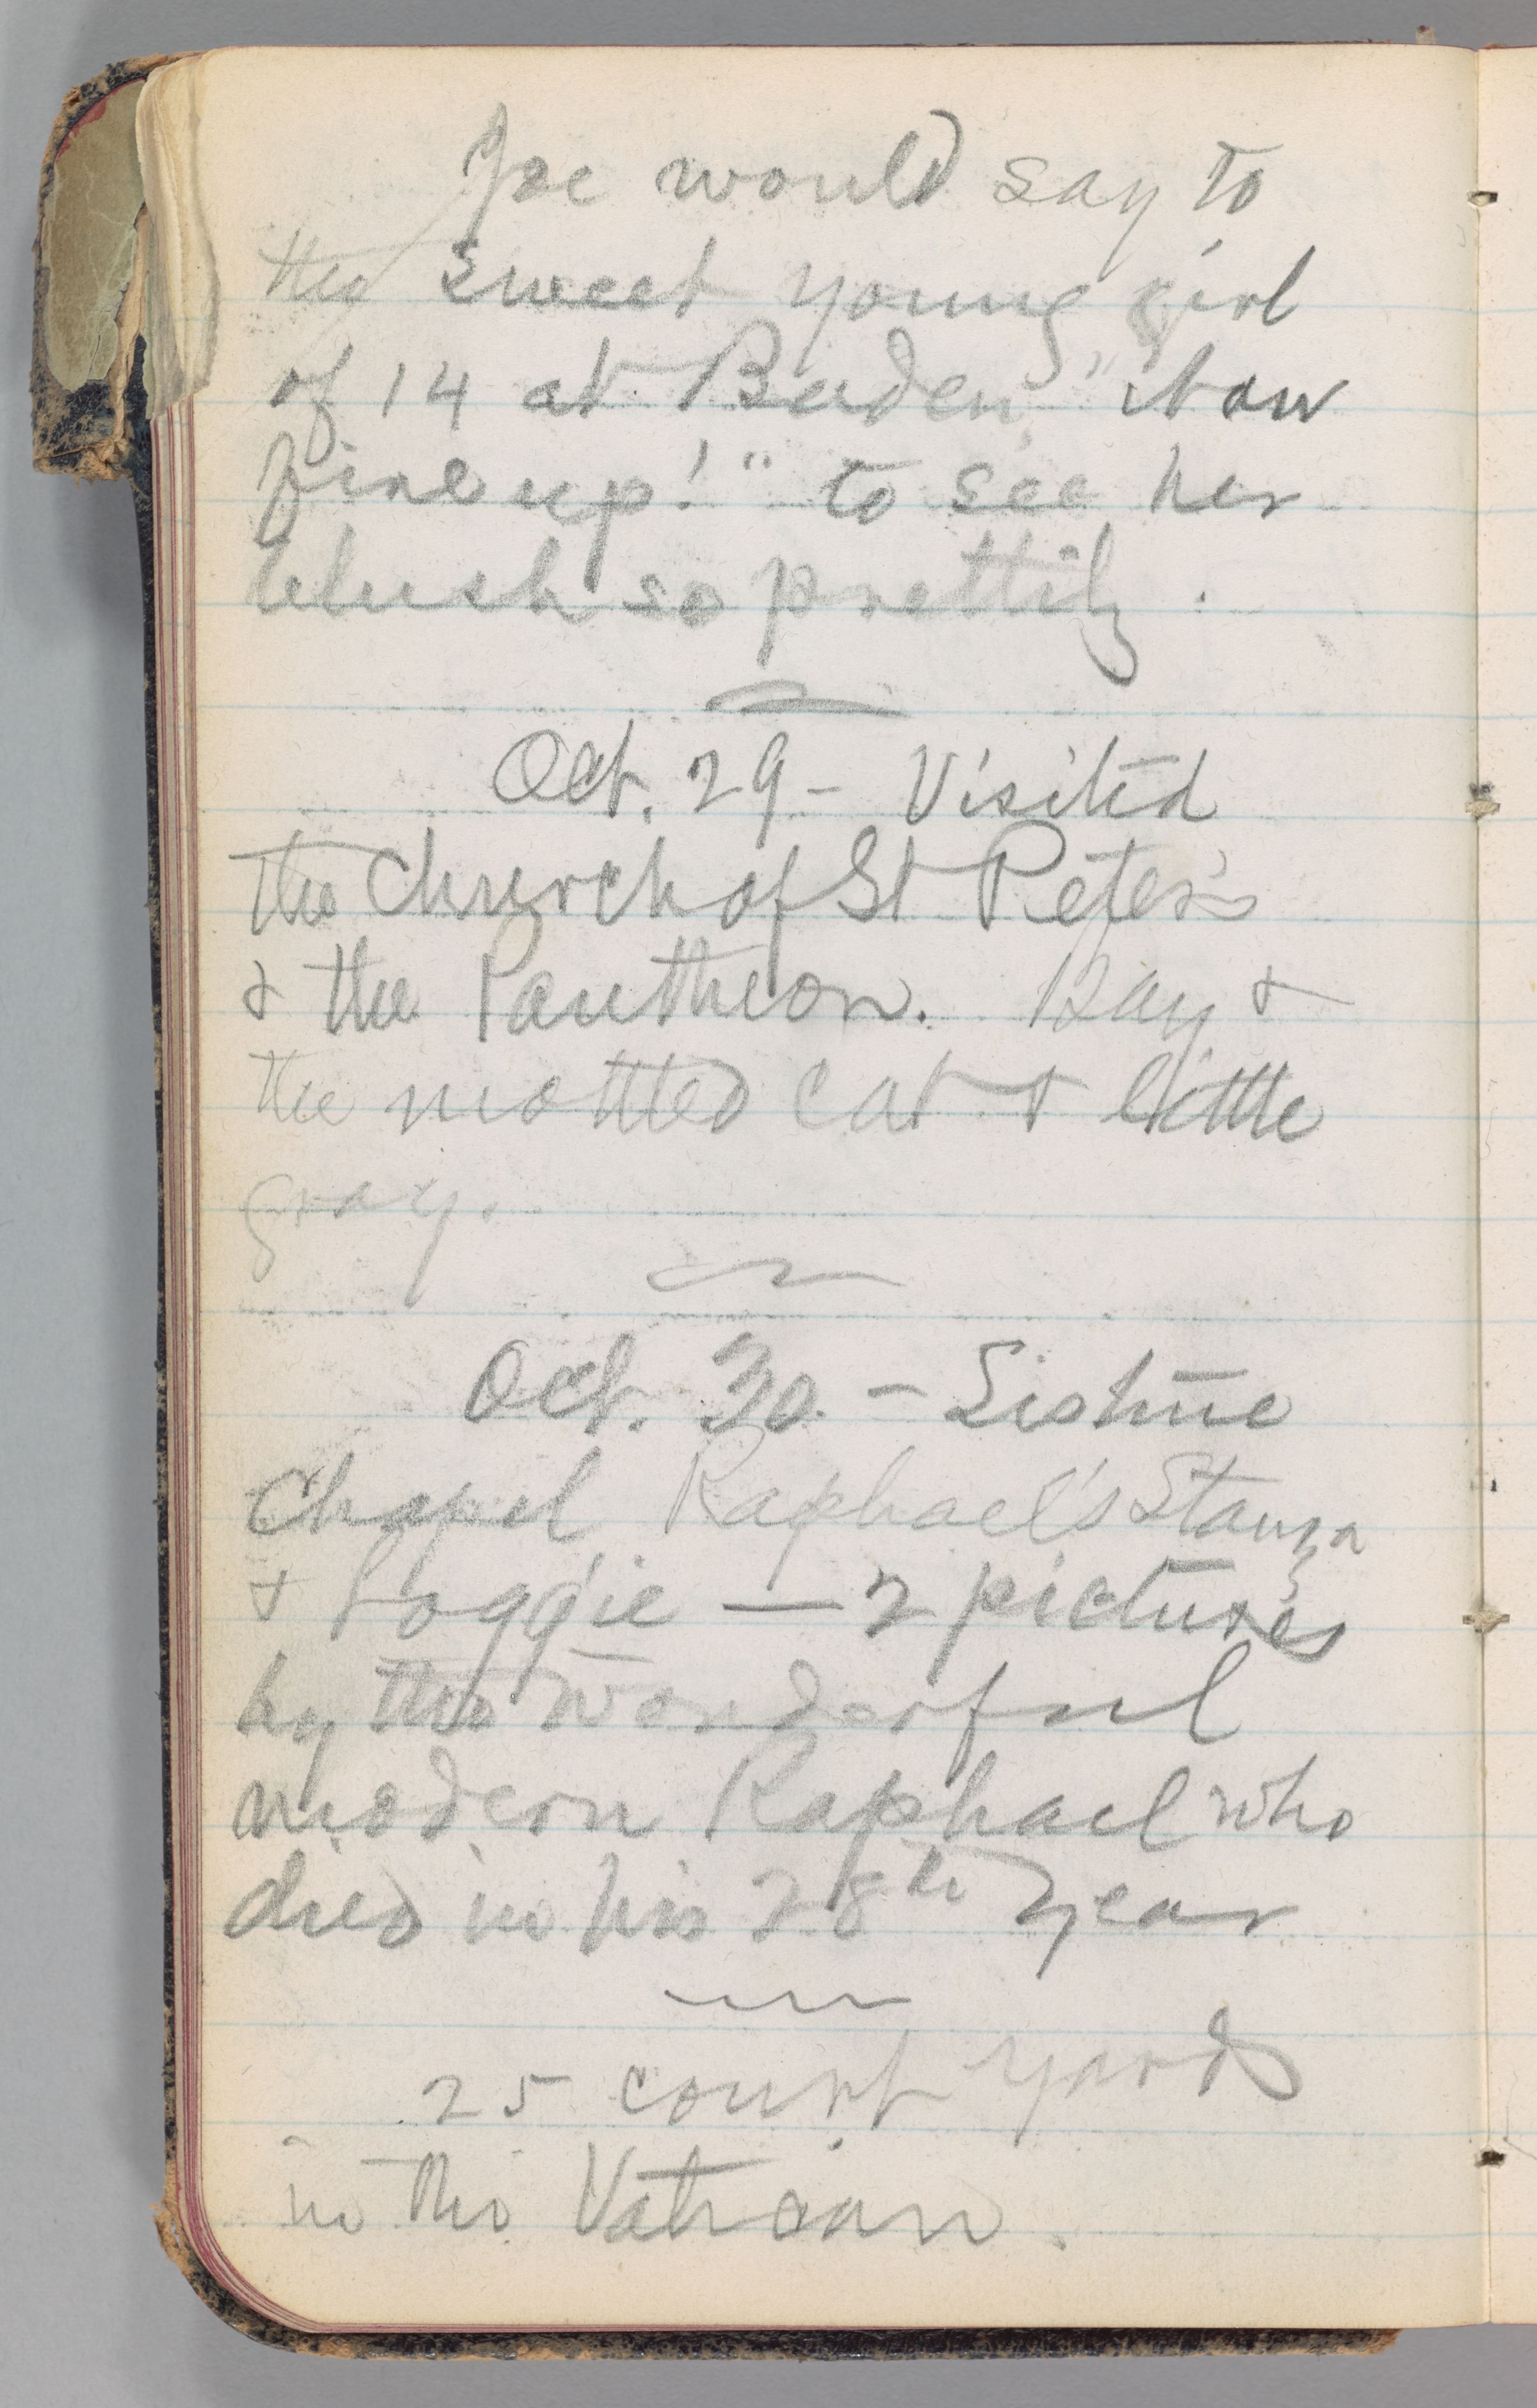 Joe would say to
the sweet young girl
of 14 at Baden "
up!" to see her
blush so prettily.
Oct. 29 - Visited
the Church of St Peter's
& the Pantheon. Bay &
the mottled cat & little
gray.
Oct. 30. - Sistine
Chapel Raphael's Stanza
& Loggie — 2 pictures
by the wonderful
modern Raphael who
died in his 28th year
25 court yards
in the Vatican.